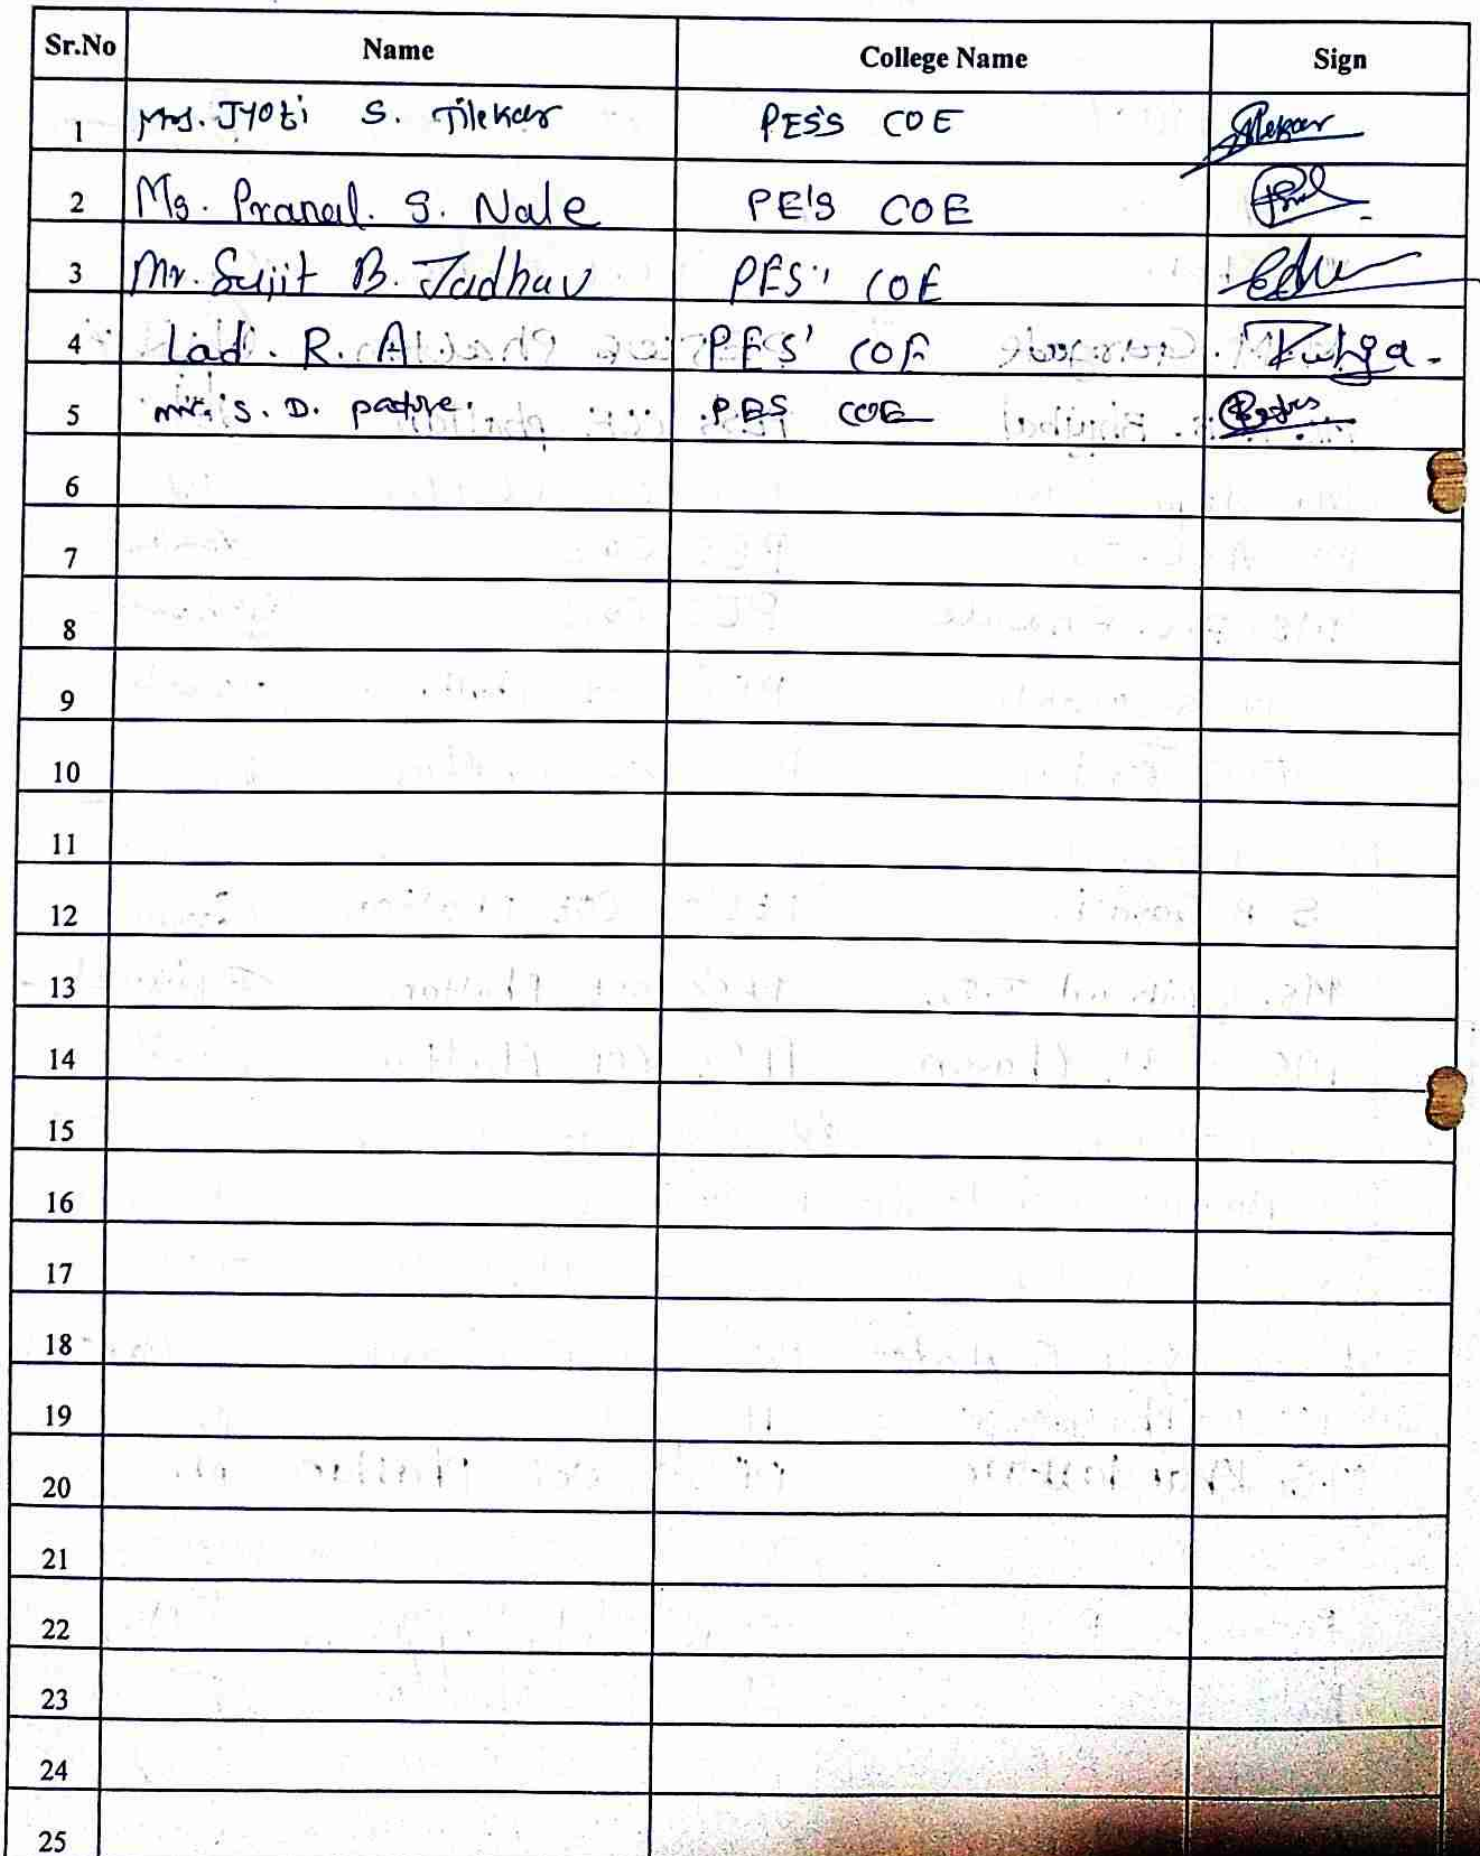 Sr.No Name College Name Sign
1 Mrs. Jyoti S. Tilekar PES's COE Tilekar
2 Ms. Pranal. S. Nale PE's COE
3 Mr. Sujit B. Jadhav PES' COE
4 Lad. R. A. PES' COE
5 mr. S. D. padre. PES COE
6
7
8
9
10
11
12
13
14
15
16
17
18
19
20
21
22
23
24
25